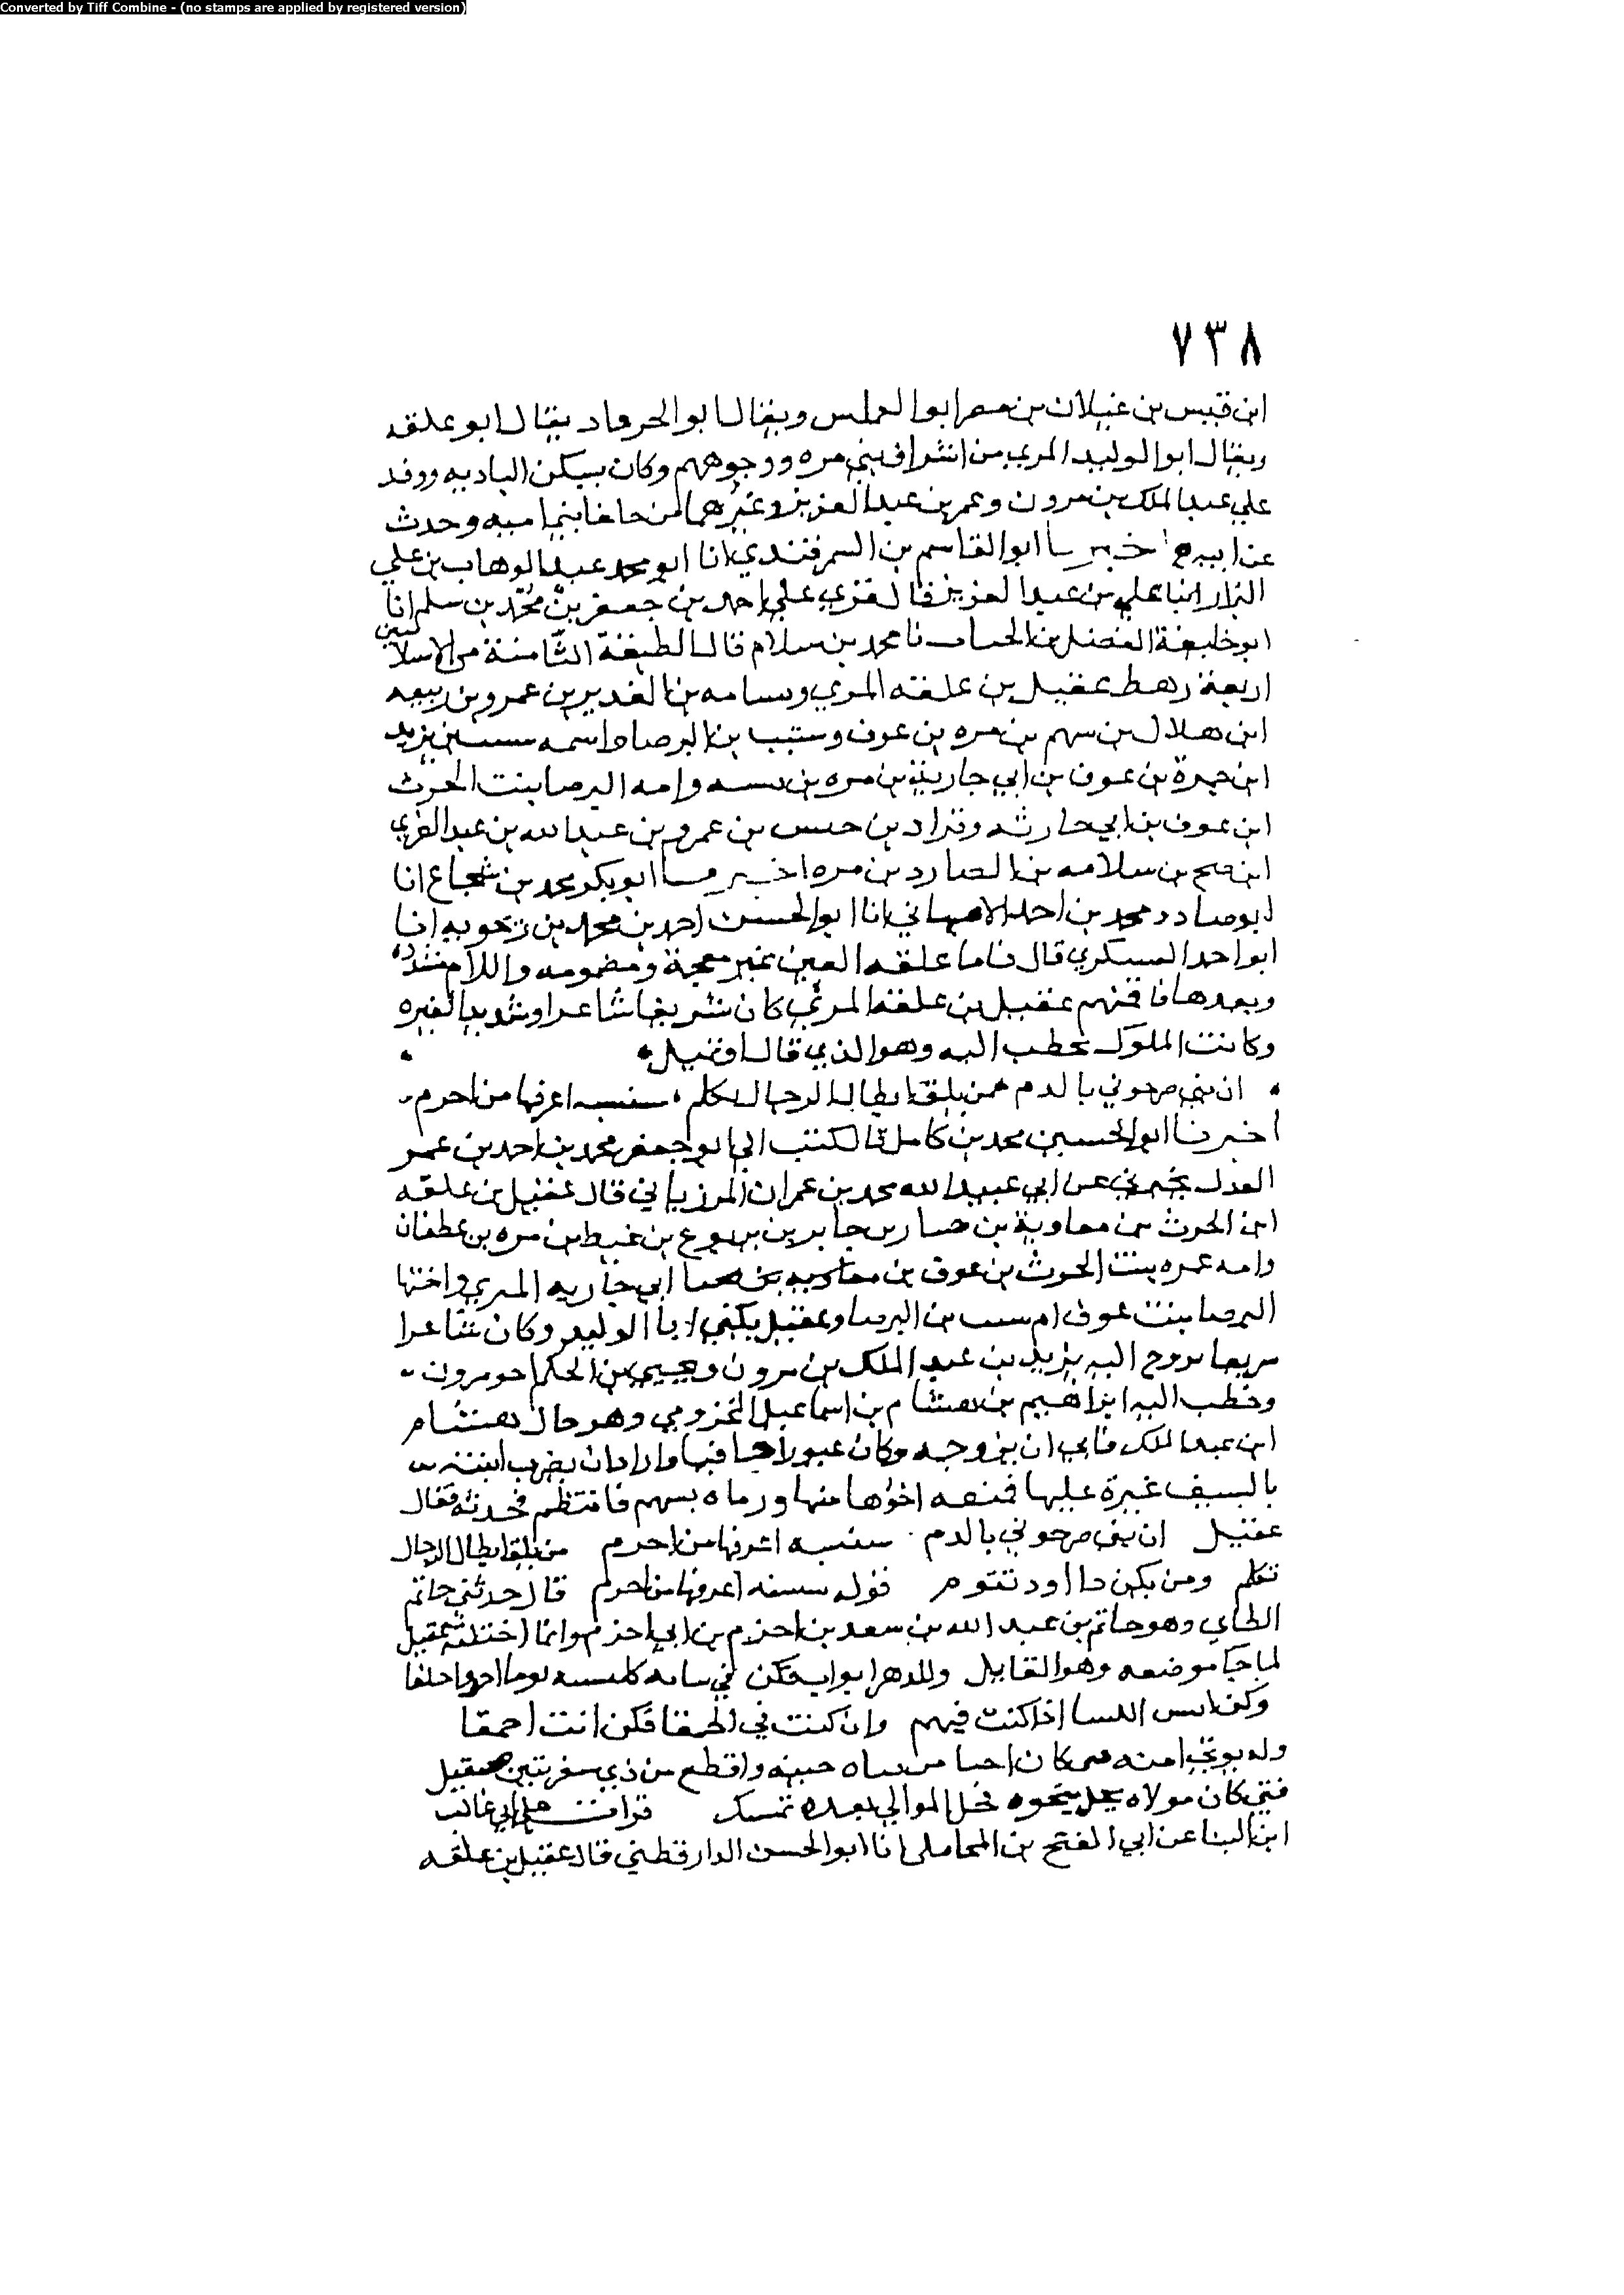 Converted by Tiff Combine - (no stamps are applied by registered version)
٧٣٨
ابن قيس بن غيلان بن مصر ابو العملس ويقال ابو الحرما د يقال ابو علقه
ويقال ابو الوليد المري من اشراف بني مره ووجوههم وكان يسكن الباديه ووفد
علي عبد الملك بن مرون وعمر بن عبد العزيز وغيرهما من خلفا بني اميه وحدث
عن ابيه اخبرنا ابو القاسم بن السمرقندي انا ابو محمد عبد الوهاب بن علي
البزار انبا علي بن عبد العزيز قال قري علي احمد بن جعفر بن محمد بن سلم انا
ابو خليفة الفضل بن الحباب نا محمد بن سلام قال الطبقة الثامنة من الاسلاميين
اربعة رهط عقيل بن علقه المري وبسامه بن الغدير بن عمرو بن ربيعه
ابن هلال بن سهم بن مره بن عوف وشبيب بن البرصا واسمه شبيب بن يزيد
ابن حمرة بن عوف بن ابي حارثة بن مره بن نسبه وامه البرصا بنت الحرث
ابن عوف بن ابي حارثه وقراد بن حنس بن عمرو بن عبد الله بن عبد العزي
ابن صبح بن سلامه بن الصارد بن مره اخبرنا ابو بكر محمد بن شجاع انا
ابو صادر محمد بن احمد الاصبهاني انا ابو الحسن احمد بن محمد بن زنجويه انا
ابو احمد العسكري قال فاما علقه العين غير معجمة ومضمومه واللام مشدده
وبعدها قا فمنهم عقيل بن علقه المري كان شريفا شاعرا وشديد الغيره
وكانت الملوك تخطب اليه وهو الذي قال
ان بني ضرجوني بالدم من يلق ابطال الرجال يكلم شنشنه اعرفها من احرم
اخبرنا ابو الحسين محمد بن كامل قال كتب الي ابو جعفر محمد بن احمد بن عمر
العدل يخبرني عن ابي عبيد الله محمد بن عمران المرزباني قال عقيل بن علقه
ابن الحرث بن معاوية بن ضبار بن جابر بن يربوع بن غيط بن مره بن غطفان
وامه عمره بنت الحرث بن عوف بن ابي حاريه المري واختها
البرصا بنت عوف ام شبيب بن البرصا وعقيل يكني ابا الوليد وكان شاعرا
شريفا تزوج اليه يزيد بن عبد الملك بن مرون ويحيي بن الحكم اخو مرون
وخطب اليه ابراهيم بن هشام بن اسماعيل المخزومي وهو خال هشام
ابن عبد الملك فابي ان يزوجه وكان غيورا جافيا واراد ان يضرب ابنته
بالسيف غيرة عليها فمنعه اخوها منها ورماه بسهم فانتظم فخديه فقال
عقيل ان بني ضرجوني بالدم شنشنه اعرفها من احرم من يلق ابطال الرجال
تكلم ومن يكن ذا اود تقوم قوله شنشنه اعرفها من احرم قال حدثني حاتم
الطاي وهو حاتم بن عبد الله بن سعد بن احزم بن ابي احزم وانما اختلقه عقيل
لما جا موضعه وهو القايل وللدهر اثواب فكن في ثيابه كلبسته يوما اجد واخلقا
وكن اكيس الكيسا اذا كنت فيهم وان كنت في الحمقا فكن انت احمقا
وله يرثي ابنه فتي كان احيا من فتاه حييه واقطع من ذي سفرتين صقيل
فتي كان مولاه يحل بنجوه فحل الموالي بعده تمسك قرات علي ابي غالب
ابن البنا عن ابي الفتح بن المحاملي انا ابو الحسن الدارقطني قال عقيل بن علقه